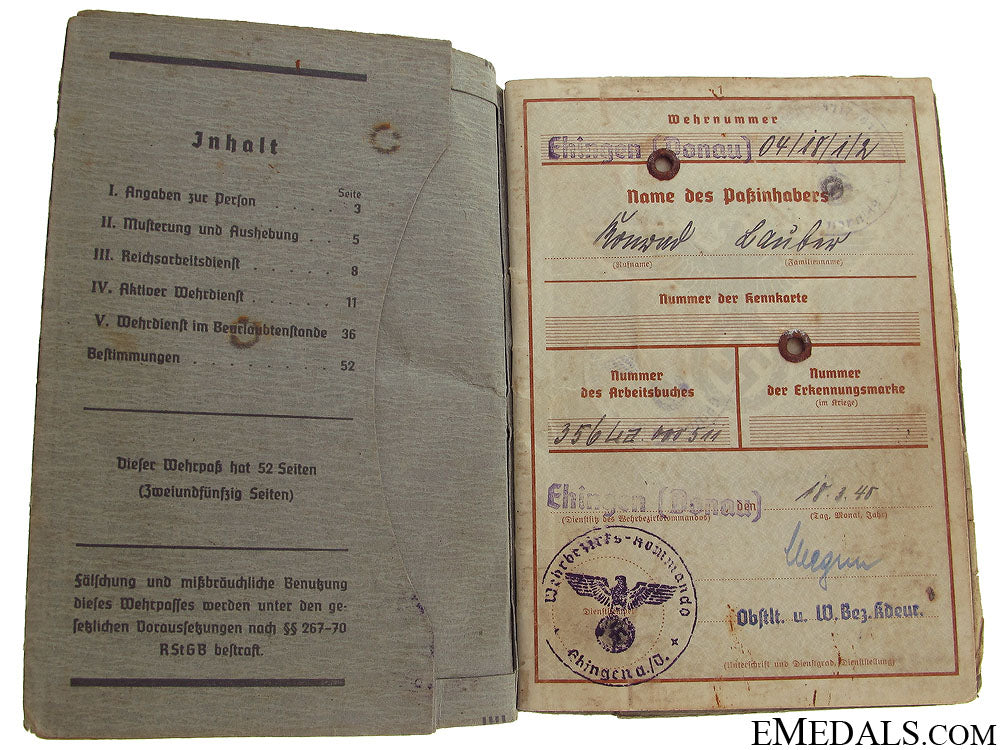 Inhalt
Seite
I. Angaben zur Person . . . . . . . 3
II. Musterung und Aushebung . . . 5
III. Reichsarbeitsdienst . . . . . . . 8
IV. Aktiver Wehrdienst . . . . . . . 11
V. Wehrdienst im Beurlaubtenstande 36
Bestimmungen . . . . . . . . . 52
Dieser Wehrpaß hat 52 Seiten
(Zweiundfünfzig Seiten)
Fälschung und mißbräuchliche Benutzung
dieses Wehrpasses werden unter den ge-
setzlichen Voraussetzungen nach §§ 267–70
RStGB bestraft.
1
Wehrnummer
Ehingen (Donau) 04/18/1/2
Name des Paßinhabers
Konrad Lauber
(Rufname) (Familienname)
Nummer der Kennkarte
Nummer
des Arbeitsbuches
Nummer
der Erkennungsmarke
(im Kriege)
Ehingen (Donau) den
(Dienstsitz des Wehrbezirkskommandos) (Tag, Monat, Jahr)
Wehrbezirks-Kommando
Ehingen a./D.
Obstlt. u. W. Bez. Kdeur.
(Unterschrift und Dienstgrad, Dienststellung)
EMEDALS.COM